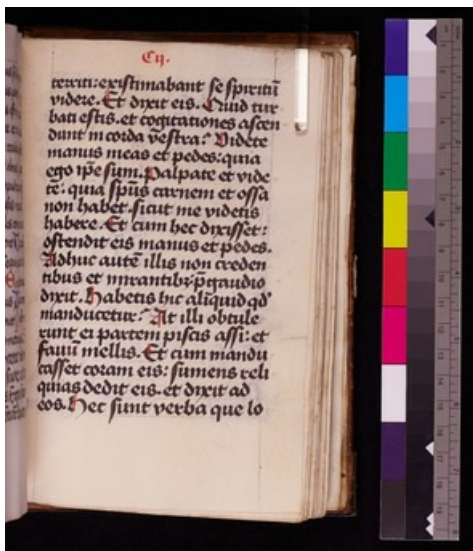 Cij.
territi: existimabant se spiritū
videre. Et dixit eis. Quid tur
bati estis. et cogitationes ascen
dunt in corda v̄estra? Videte
manus meas et pedes: quia
ego ip̄e sum. Palpate et vide
te: quia sp̄us carnem et ossa
non habet. sicut me videtis
habere. Et cum hec dixisset:
ostendit eis manus et pedes.
Adhuc autē illis non creden
tibus et mirantibꝫ p̄ gaudio
dixit. Habetis hic aliquid qd̓
manducetur? At illi obtule
runt ei partem piscis assi: et
fauū mellis. Et cum mandu
casset coram eis: sumens reli
quias dedit eis. et dixit ad
eos. Hec sunt verba que lo